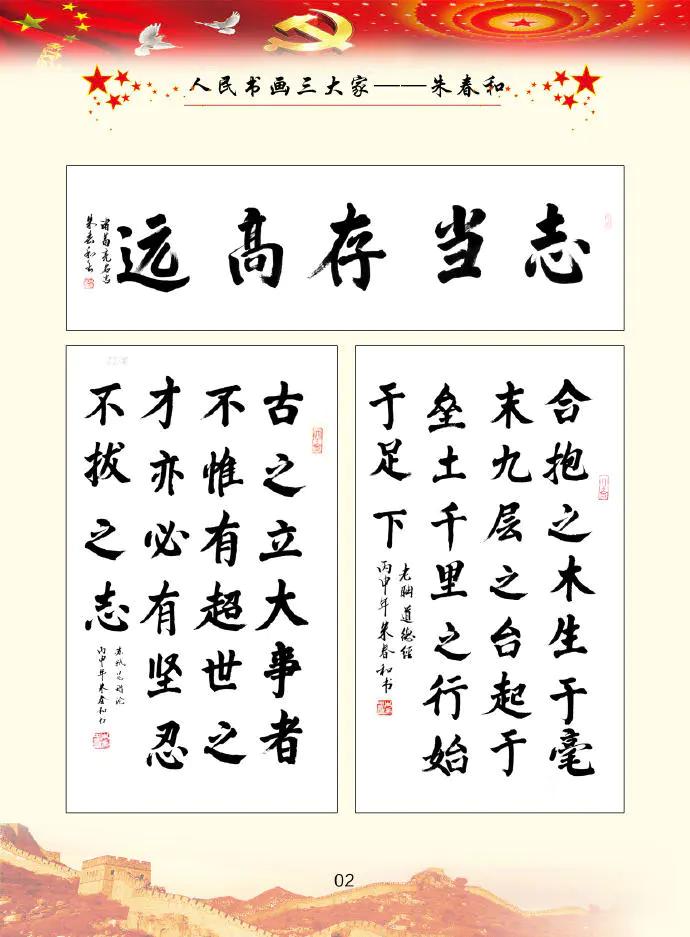 人民书画三大家——朱春和
志当存高远
诸葛亮名言
朱春和书
合抱之木生于毫
末九层之台起于
垒土千里之行始
于足下
老聃道德经
丙申年朱春和书
古之立大事者
不惟有超世之
才亦必有坚忍
不拔之志
苏轼晁错论
丙申年朱春和书
02